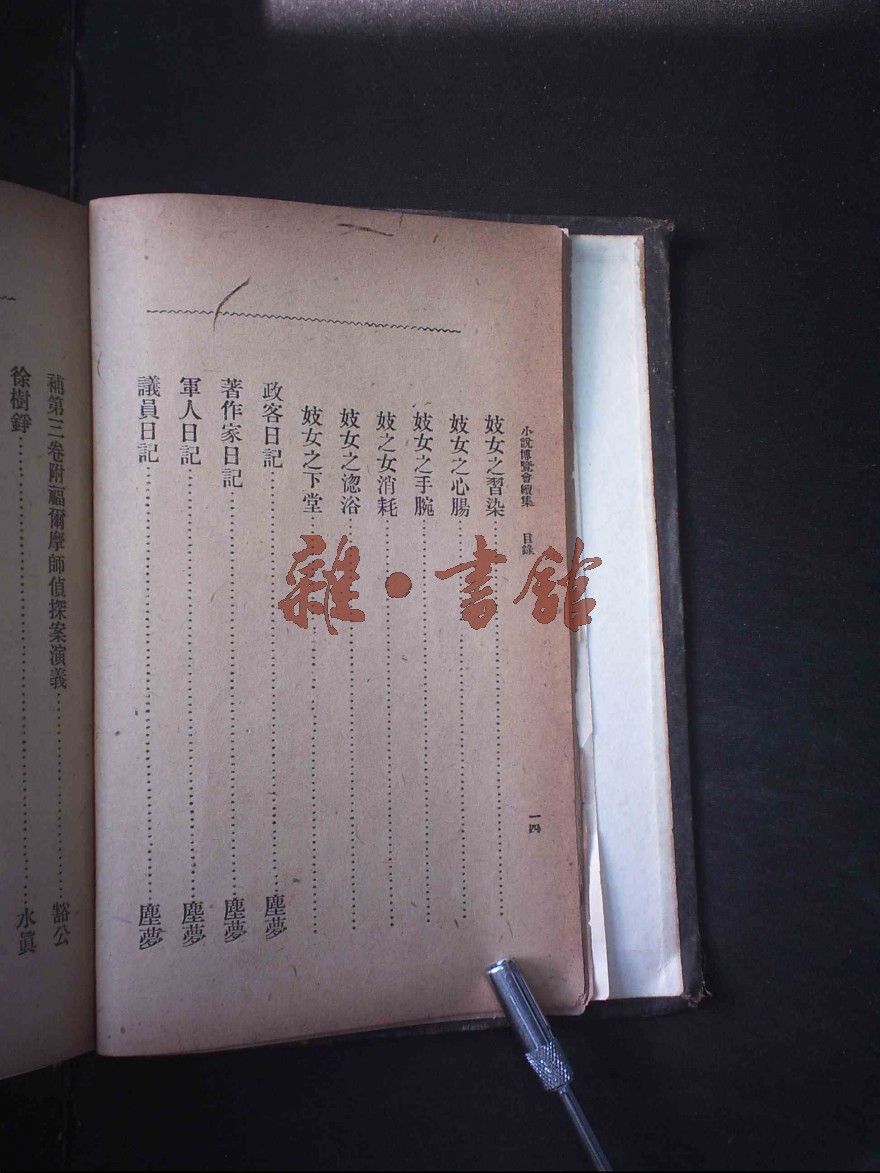 小說博覽會續集 目錄 一四
妓女之習染
妓女之心腸
妓女之手腕
妓之女消耗
妓女之淴浴
妓女之下堂
政客日記 塵夢
著作家日記 塵夢
軍人日記 塵夢
議員日記 塵夢
補第三卷附福爾摩師偵探案演義 豁公
徐樹錚 水眞
雜·書館